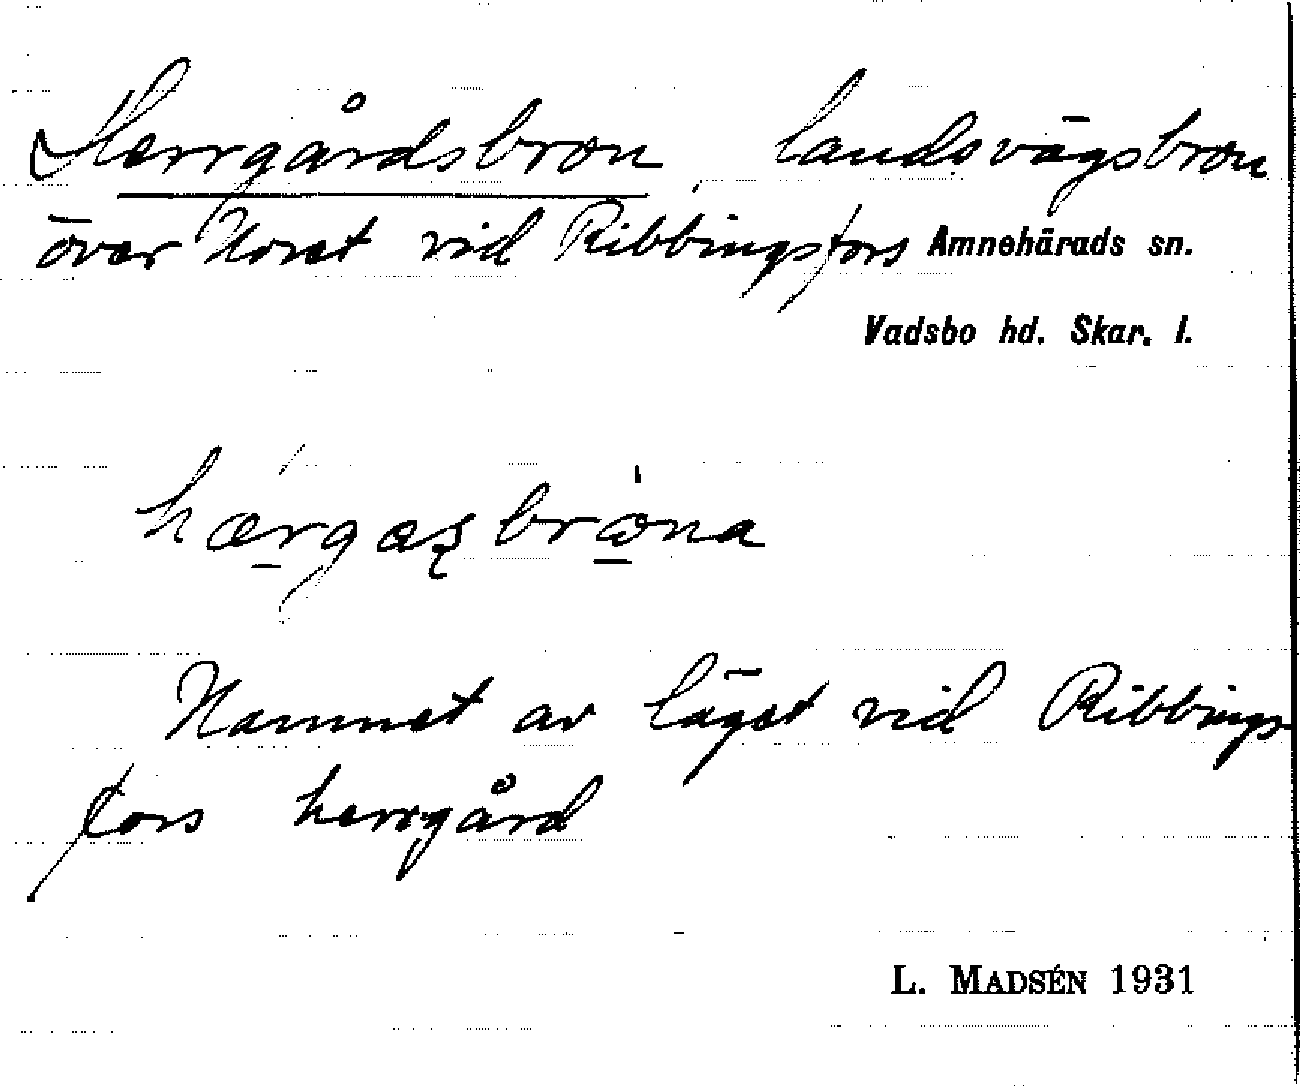 Herrgårdsbron, landsvägsbron
över Noret vid Ribbingsfors Amnehärads sn.
Vadsbo hd. Skar. l.
Namnet av läget vid Ribbings-
fors herrgård
L. MADSÉN 1931